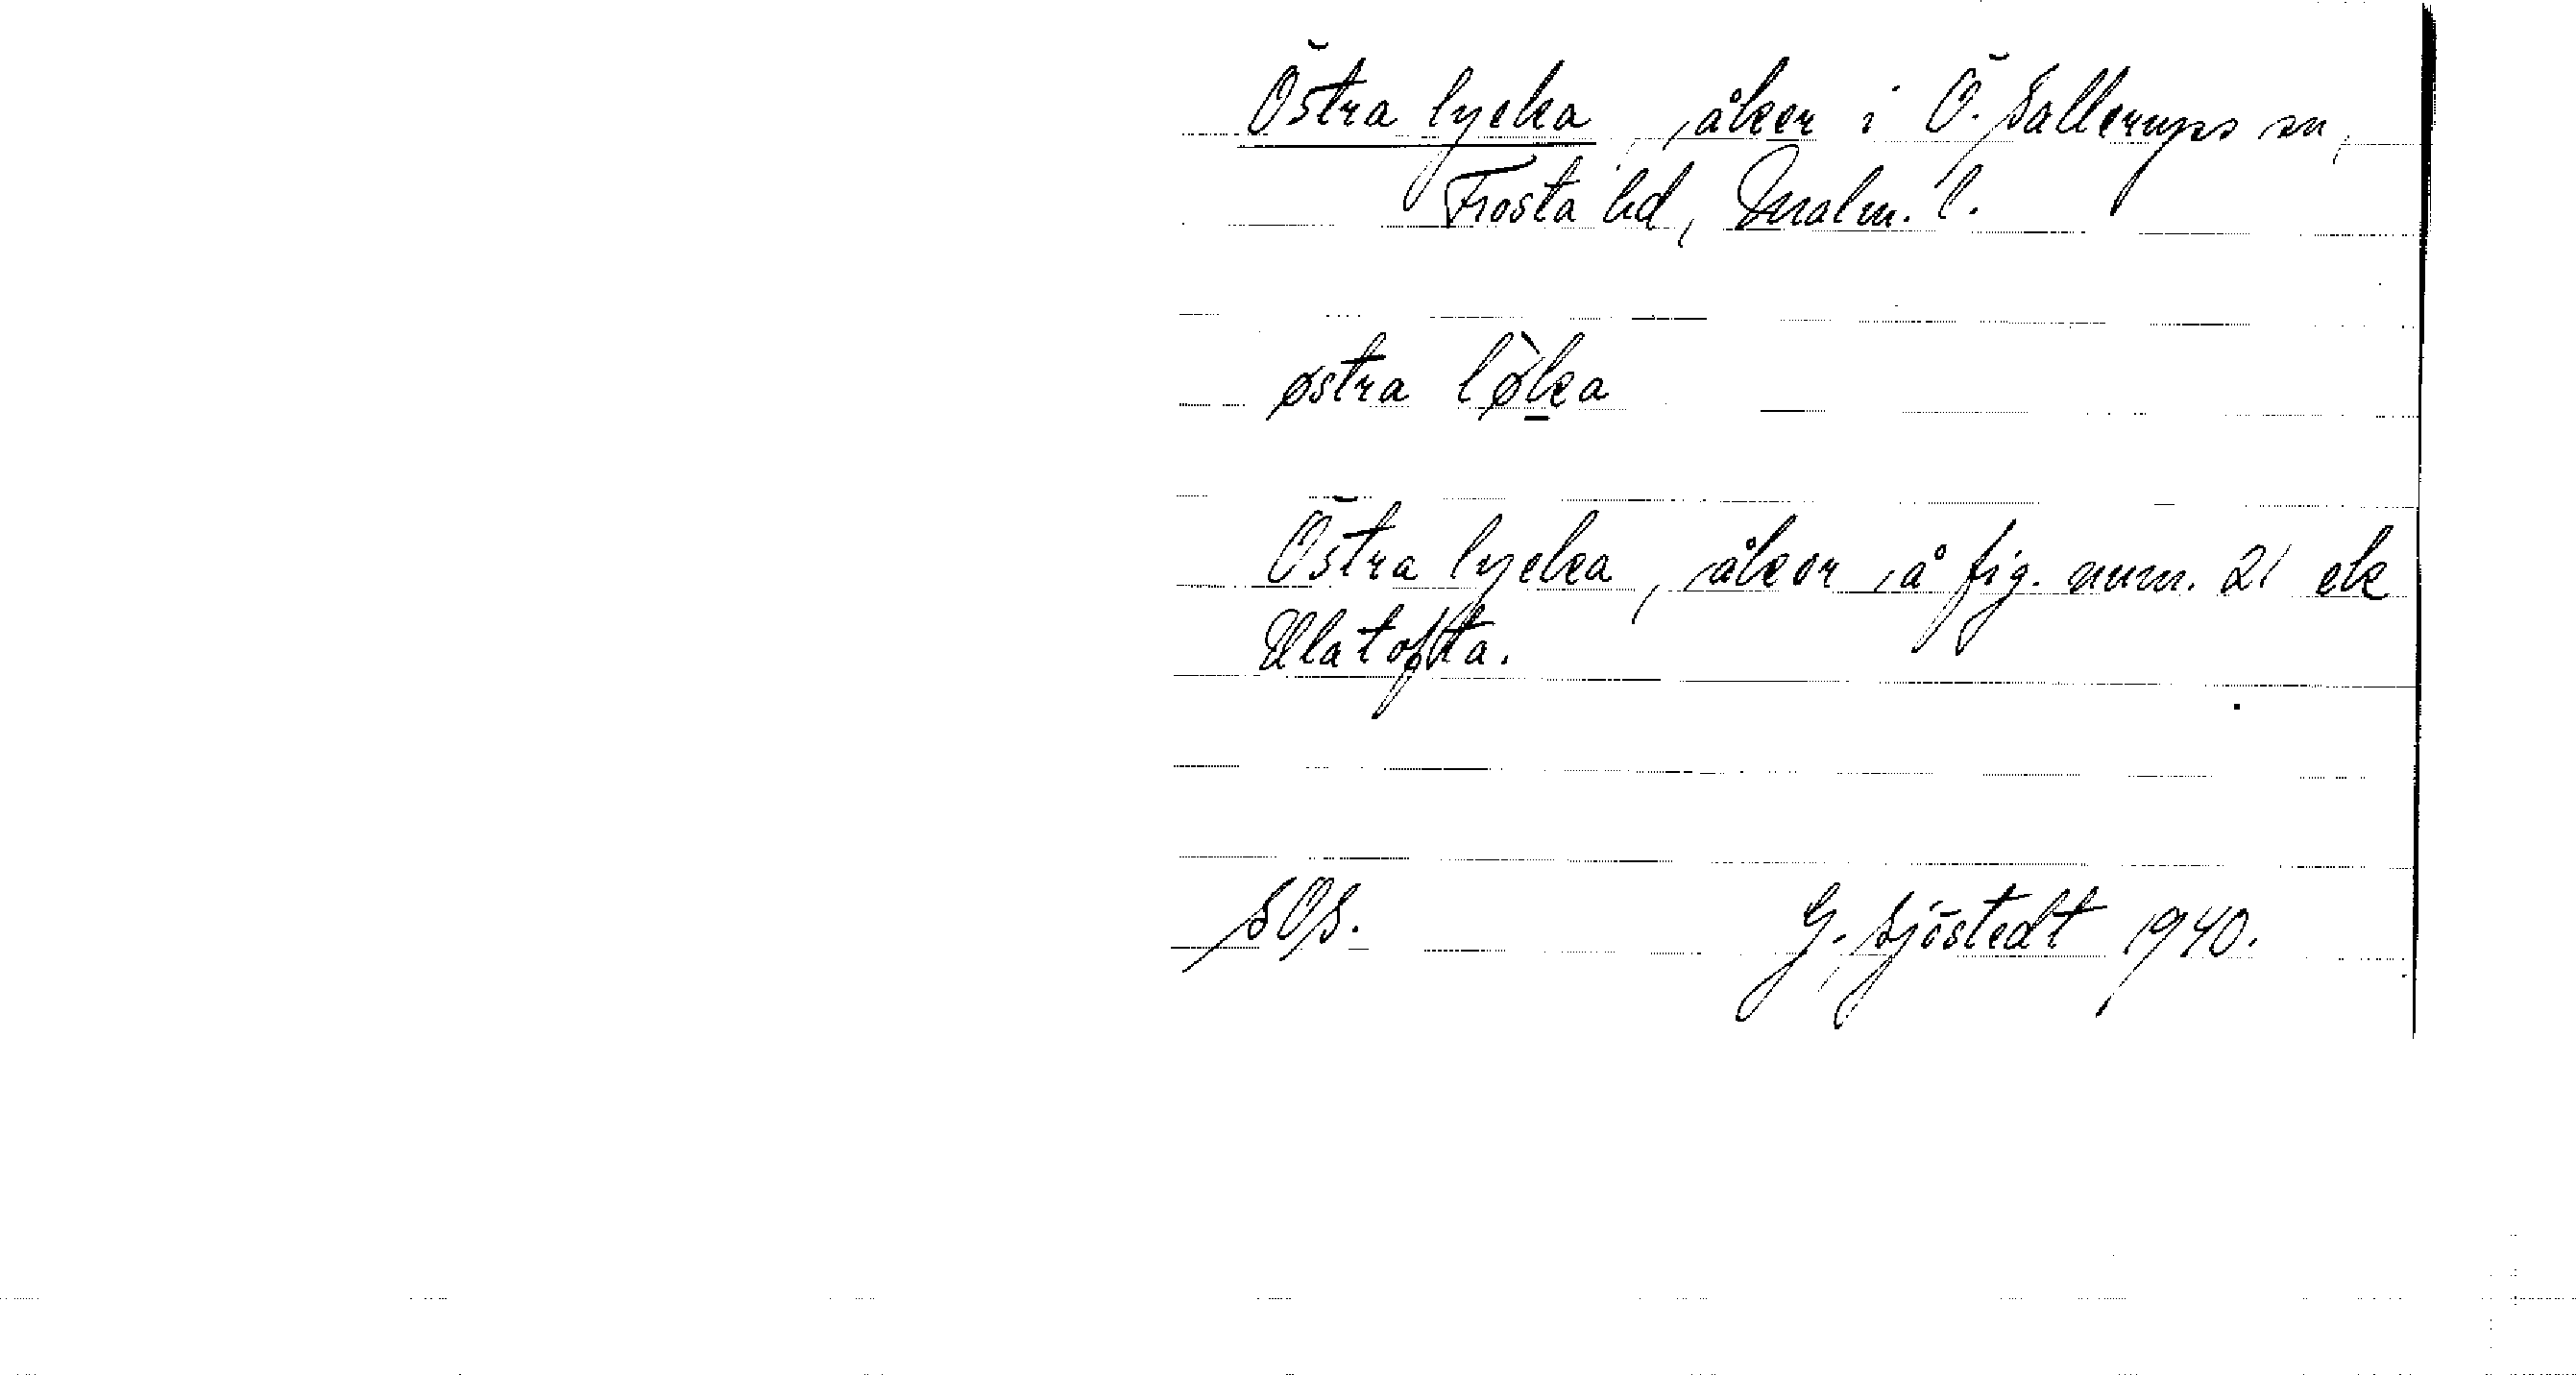 Östra lycka, åker i Ö. Sallerups sn,
Frosta hd, Malm. l.
østra lø̀k̲a
Östra lycka, åker å fig. num. 21 ek
Ulatofta.
SOS.
G. Sjöstedt 1940.